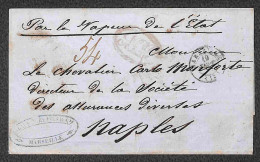 Par le Vapeur de l'État
54
Monsieur
Le chevalier Carlo Monforte
Directeur de la Société
des assurances diverses
MARSEILLE
Naples